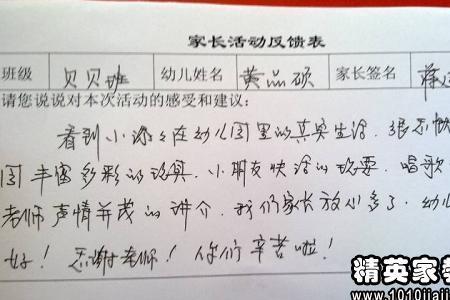 家长活动反馈表
班级 贝贝班 幼儿姓名 黄品硕 家长签名 薛
请您说说对本次活动的感受和建议:
看到小孩在幼儿园里的真实生活,很
园丰富多彩的玩具,小朋友快活的玩耍,唱歌
老师声情并茂的讲介,我们家长放心多了,幼儿
好!感谢老师!你们辛苦啦!
精英家教
www.1010jiaji